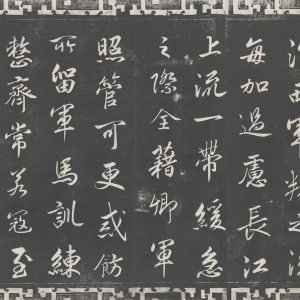 江西軍判之
每加過慮長江
上流一帶緩急
之際全藉卿軍
照管可更戒飭
所留軍馬訓練
整齊常若寇至